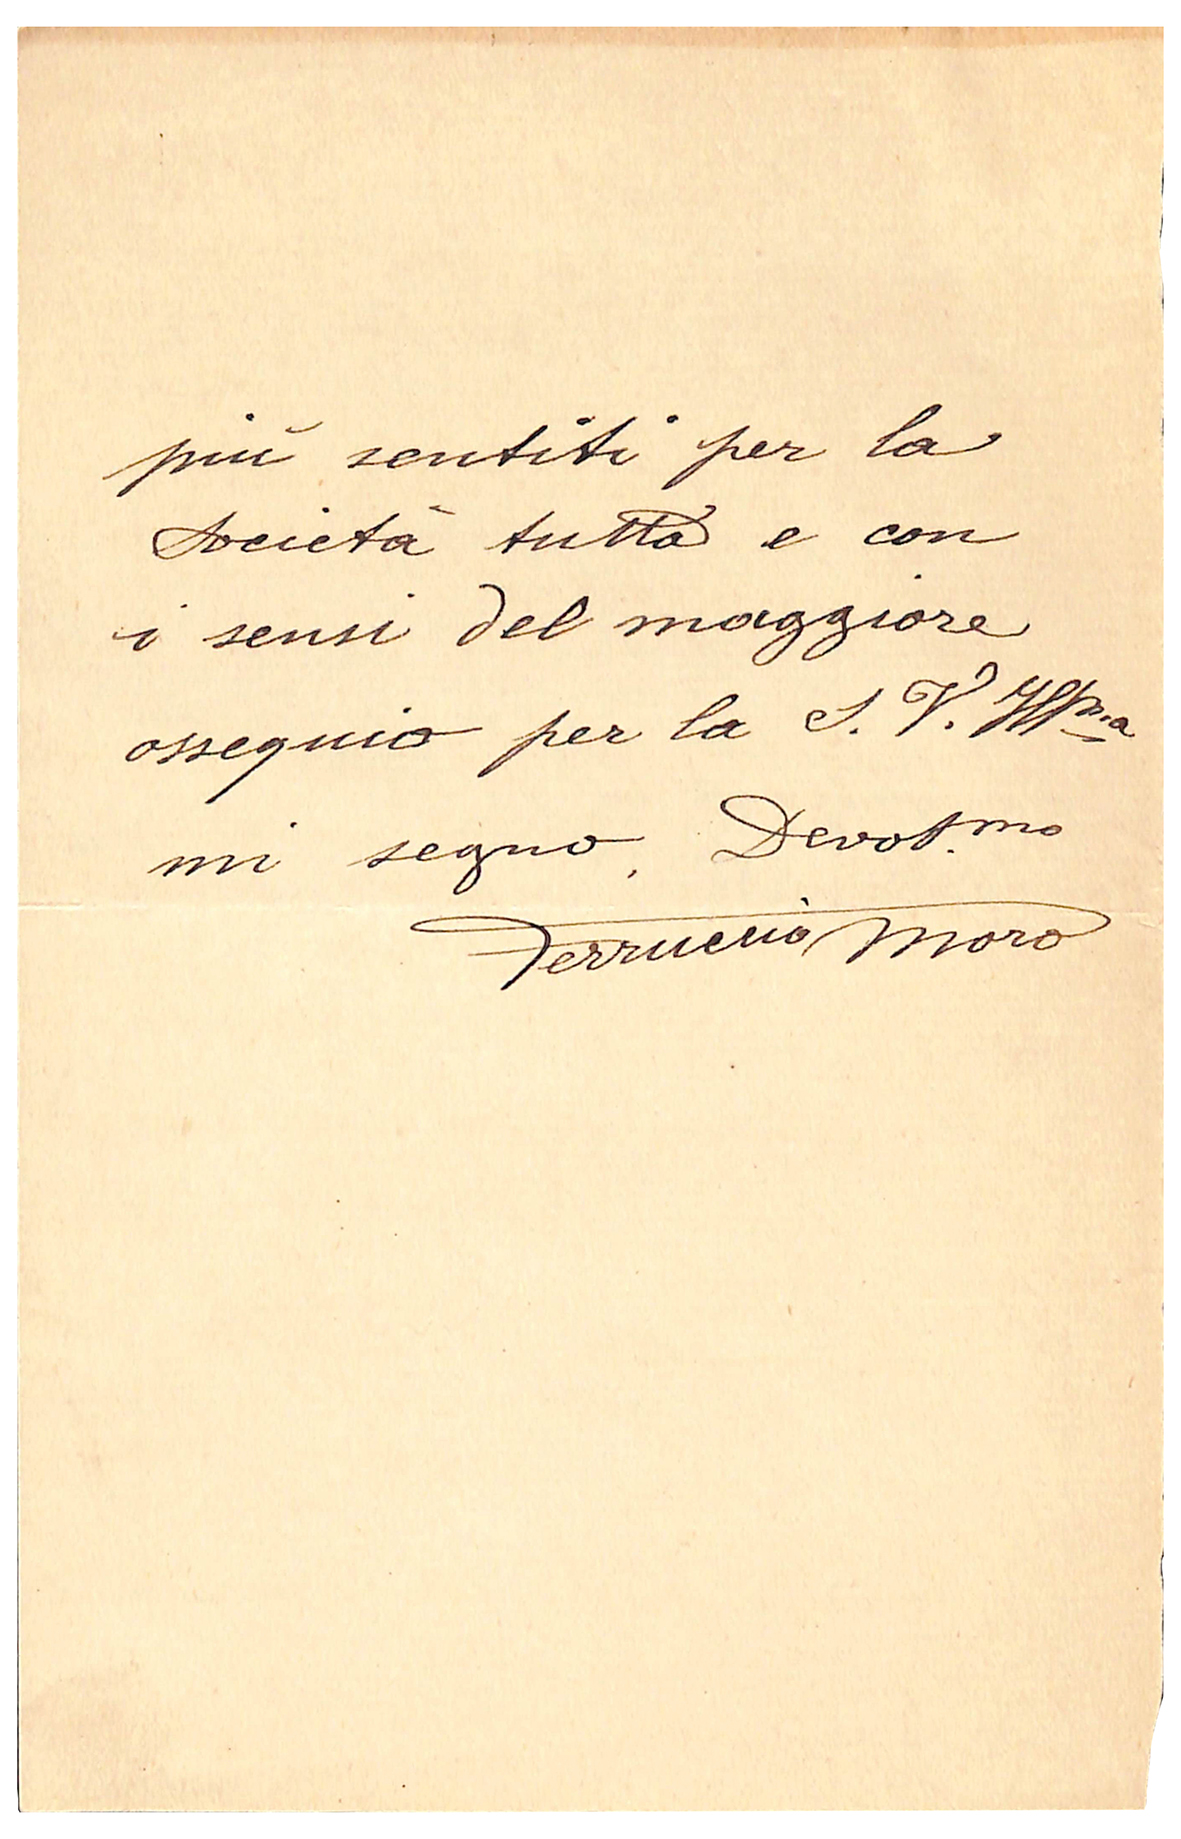 più sentiti per la
Società tutta e con
i sensi del maggiore
ossequio per la S. V. Ill.ma
mi segno. Devot.mo
Ferruccio Moro